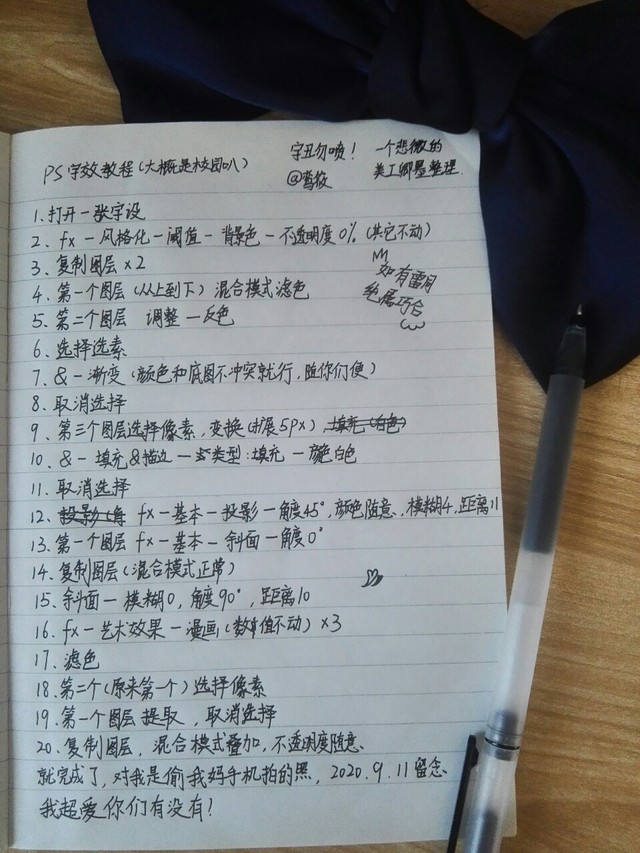 PS字效教程(大概是校园叭)
字丑勿喷!
@鸾筱
一个悲微的
美工卿墨整理
1.打开一张字设
2. fx-风格化-阈值-背景色-不透明度0%(其它不动)
3.复制图层×2
如有雷同
纯属巧合
4.第一个图层(从上到下)混合模式滤色
5.第二个图层 调整-反色
6.选择选素
7.&-渐变(颜色和底图不冲突就行,随你们便)
8.取消选择
9.第三个图层选择像素,变换(扩展5px),填充(白色)
10.&-填充&描边-类型:填充-颜色白色
11.取消选择
12.投影(角 fx-基本-投影-角度45°,颜色随意,模糊4,距离11
13.第一个图层fx-基本-斜面-角度0°
14.复制图层(混合模式正常)
15.斜面-模糊0,角度90°,距离10
16.fx-艺术效果-漫画(数值不动)×3
17.滤色
18.第二个(原来第一个)选择像素
19.第一个图层提取,取消选择
20.复制图层,混合模式叠加,不透明度随意、
就完成了,对我是偷我妈手机拍的照,2020.9.11留念、
我超爱你们有没有!